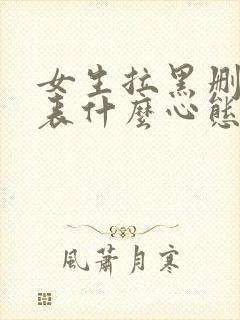 女生拉黑删
表什麼心態
風蕭月寒